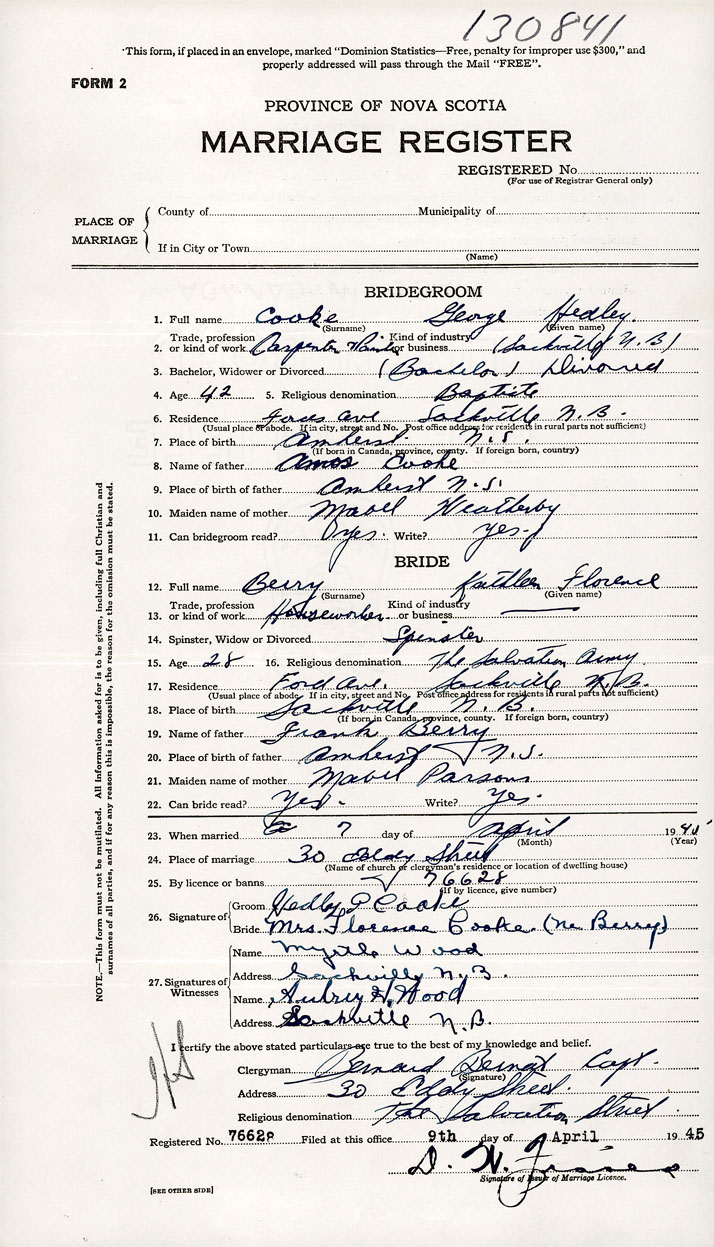 130841
"This form, if placed in an envelope, marked "Dominion Statistics—Free, penalty for improper use $300," and
properly addressed will pass through the Mail "FREE".
FORM 2
PROVINCE OF NOVA SCOTIA
MARRIAGE REGISTER
REGISTERED No.
(For use of Registrar General only)
PLACE OF MARRIAGE
County of Municipality of
If in City or Town
(Name)
BRIDEGROOM
1. Full name Cooke George Hedley
(Surname) (Given name)
Trade, profession Kind of industry
2. or kind of work Carpenter or business (Sackville N.B)
3. Bachelor, Widower or Divorced (Bachelor) Divorced
4. Age 42 5. Religious denomination Baptist
6. Residence Ave Sackville N.B.
(Usual place of abode. If in city, street and No. Post office address for residents in rural parts not sufficient)
7. Place of birth Amherst N.S.
(If born in Canada, province, county. If foreign born, country)
8. Name of father Amos Cooke
9. Place of birth of father Amherst N.S.
10. Maiden name of mother Mabel Weatherby
11. Can bridegroom read? Yes. Write? Yes.
BRIDE
12. Full name Berry Kathleen Florence
(Surname) (Given name)
Trade, profession Kind of industry
13. or kind of work Houseworker or business
14. Spinster, Widow or Divorced Spinster
15. Age 28 16. Religious denomination The Salvation Army
17. Residence Ford Ave. Sackville N.B.
(Usual place of abode. If in city, street and No. Post office address for residents in rural parts not sufficient)
18. Place of birth Sackville N.B.
(If born in Canada, province, county. If foreign born, country)
19. Name of father Frank Berry
20. Place of birth of father Amherst N.S.
21. Maiden name of mother Mabel Parsons
22. Can bride read? Yes. Write? Yes.
23. When married 7 day of April 19
(Month) (Year)
24. Place of marriage 30 Eddy Street
(Name of church or clergyman's residence or location of dwelling house)
25. By licence or banns 76628
(If by licence, give number)
26. Signature of
Groom Hedley P Cooke
Bride Mrs. Florence Cooke (nee Berry)
27. Signatures of Witnesses
Name Myrtle Wood
Address Sackville N.B.
Name Aubrey H. Wood
Address Sackville N.B.
I certify the above stated particulars are true to the best of my knowledge and belief.
Clergyman Bernard Capt.
(Signature)
Address 30 Eddy Street
Religious denomination The Salvation Street
Registered No. 76628 Filed at this office 9th day of April 1945
D. W.
Signature of Issuer of Marriage Licence.
[SEE OTHER SIDE]
NOTE.—This form must not be mutilated. All information asked for is to be given, including full Christian and
surnames of all parties, and if for any reason this is impossible, the reason for the omission must be stated.